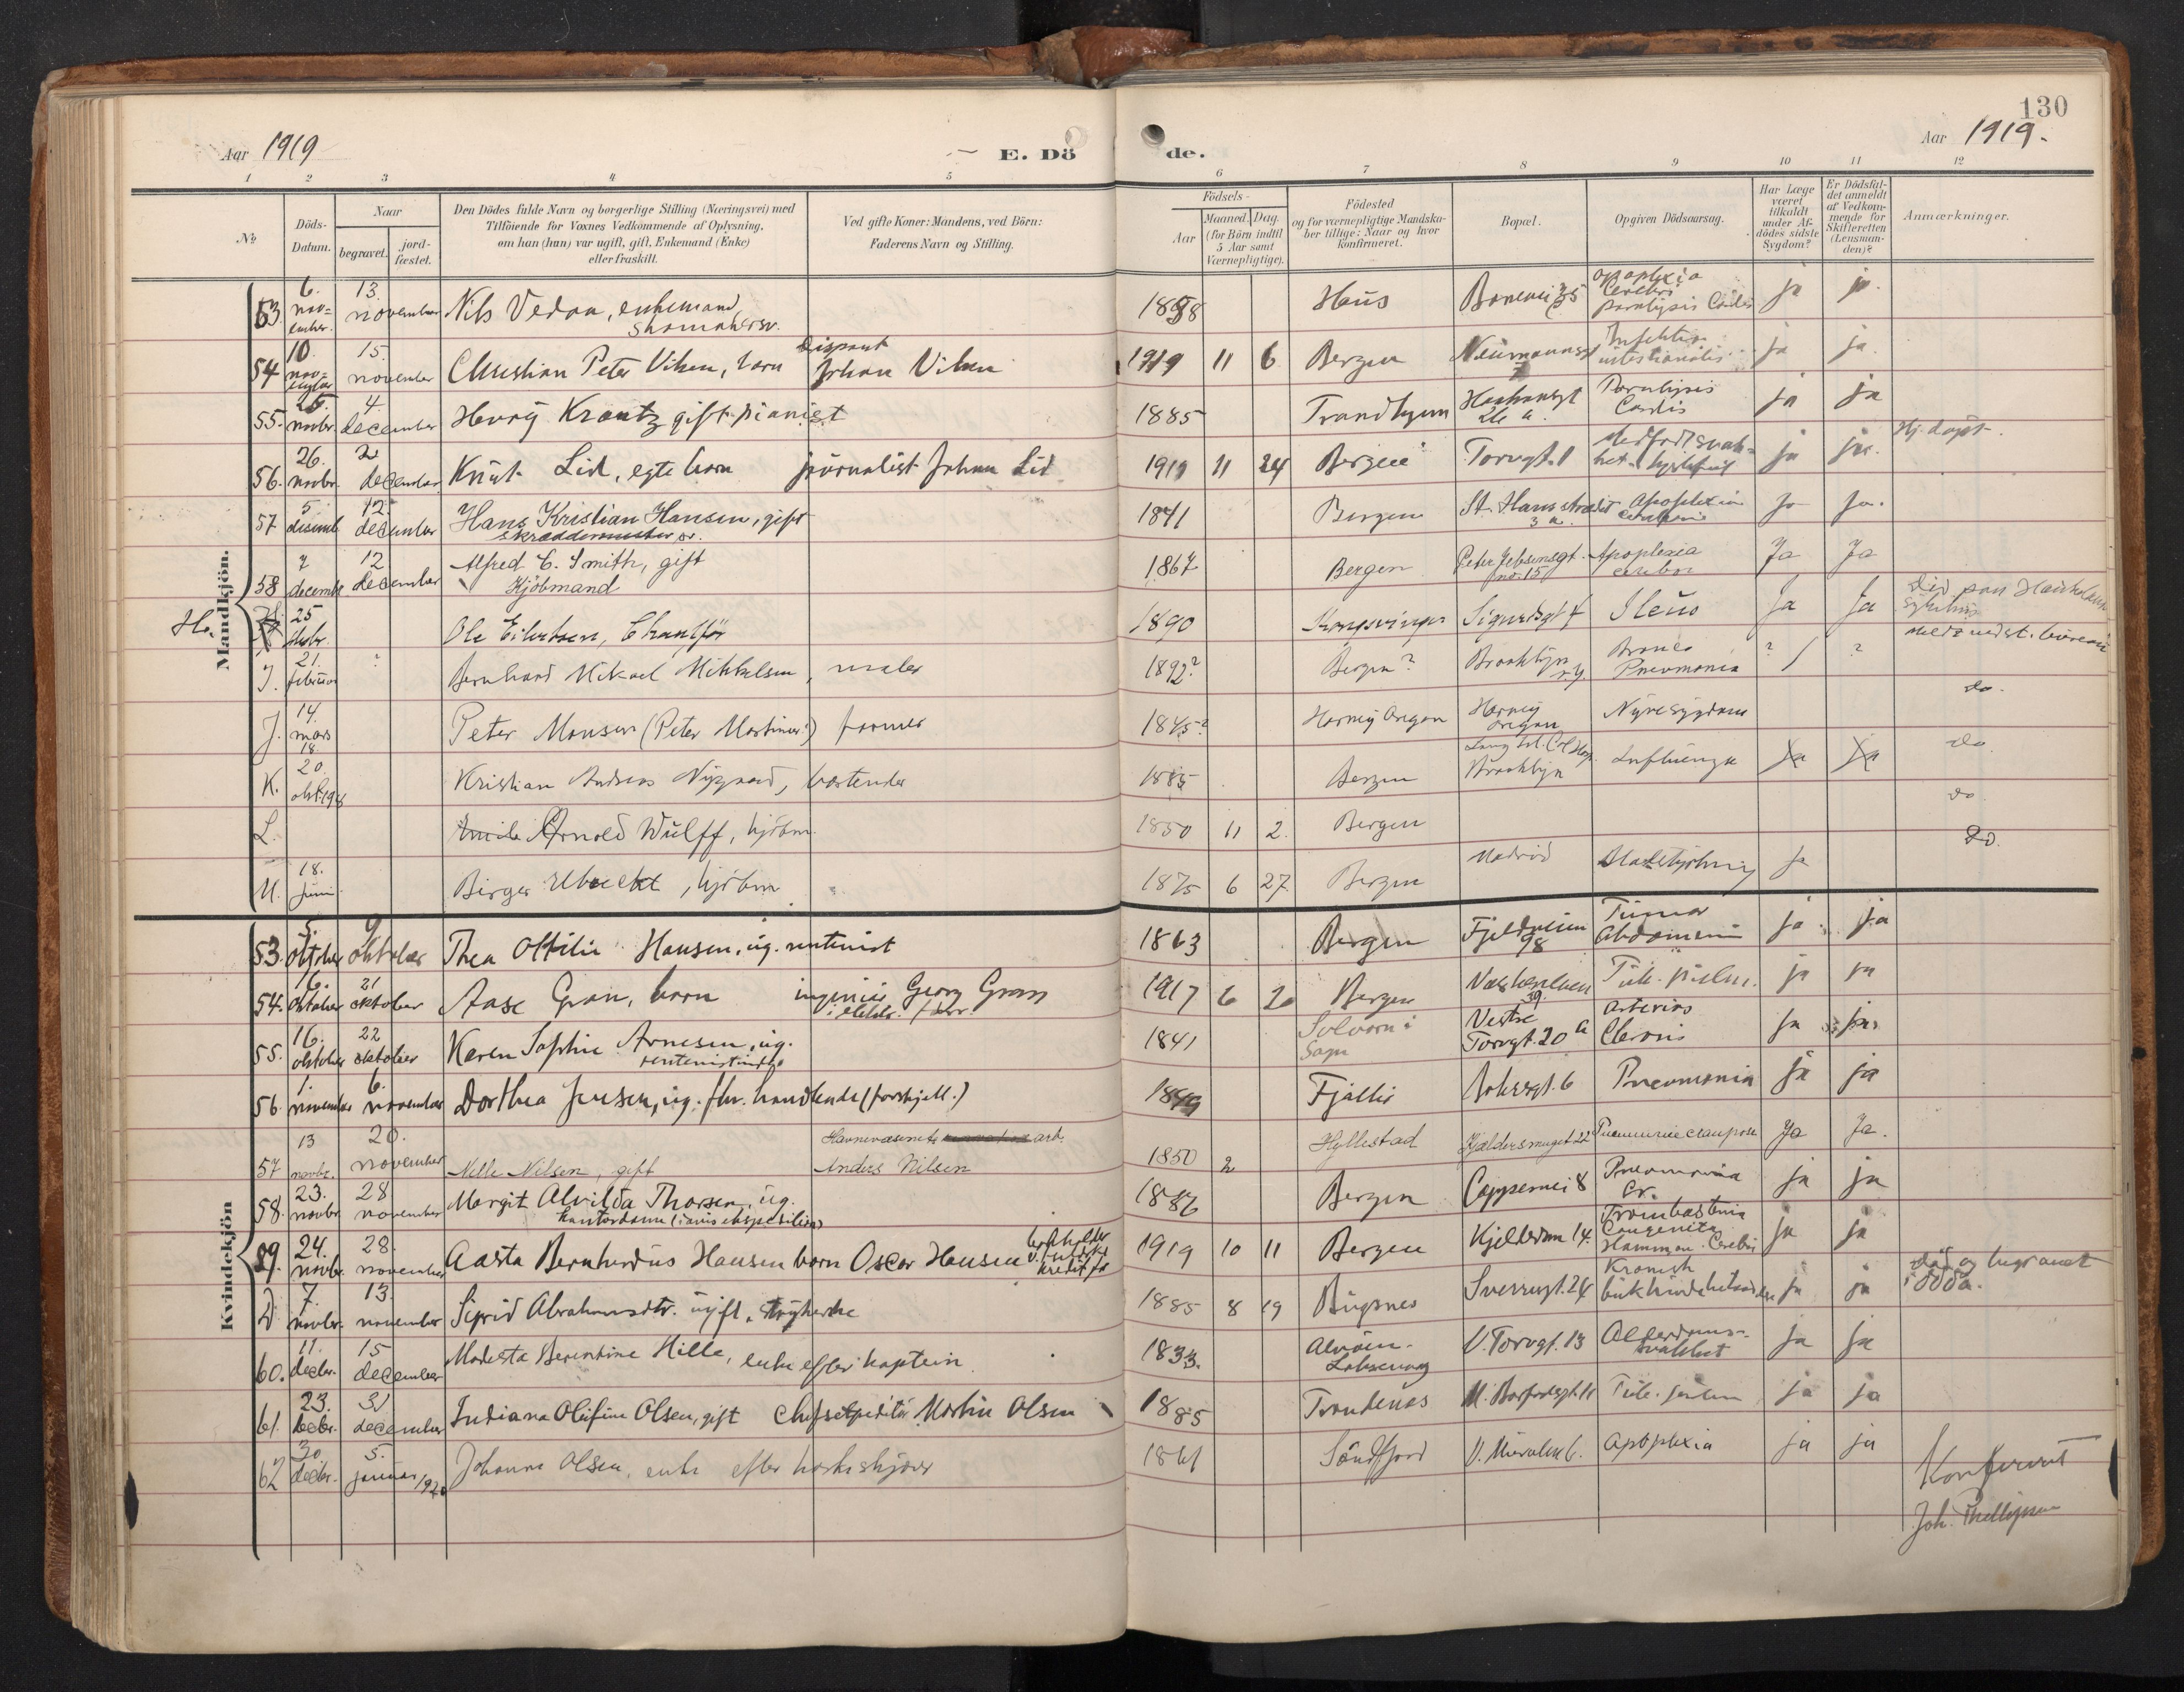 130
Aar 1919
E. Dö
de.
Aar 1919.
1 2 3 4 5 6 7 8 9 10 11 12
No
Döds-Datum.
Naar
begravet.
jord-fæstet.
Den Dödes fulde Navn og borgerlige Stilling (Næringsvei) med
Tilföiende for Voxnes Vedkommende af Oplysning,
om han (hun) var ugift, gift, Enkemand (Enke)
eller fraskilt.
Ved gifte Koner: Mandens, ved Börn:
Faderens Navn og Stilling.
Födsels-
Aar
Maaned. Dag.
(for Börn indtil
5 Aar samt
Værnepligtige).
Födested
og for værnepligtige Mandska-
ber tillige: Naar og hvor
konfirmeret.
Bopæl.
Opgiven Dödsaarsag.
Har Læge
været
tilkaldt
under Af-
dödes sidste
Sygdom?
Er Dödsfal-
det anmeldt
af Vedkom-
mende for
Skifteretten
(Lensman-
den)?
Anmærkninger.
Mandkjön.
53. 6. november. 13. november Nils Vedaa, enkemand, skomakersv. 1858 Haus 35 apoplexia cerebri paralysis Cordis ja ja.
54 10. november 15. november Christian Peter Viken, barn Disponent Johan Viken 1919 11 6 Bergen Neumannsgt 7 Infektio intestinalis ja ja.
55. 25. novbr. 4. december Henry Krantz gift pianist 1885 Trondhjem Haakonsgt 26 a. Paralysis Cordis ja ja
56. 26. novbr. 2 december Knut Lid, egte barn journalist Johan Lid 1919 11 24 Bergen Torvgt. 1 Medfødt svak-het ja ja. Hj. døpt.
57 5 desemb. 12. december Hans Kristian Hansen, gift skræddermester 1841 Bergen St. Hans strædet 3 a. Apoplexia cerebri Ja Ja.
58 7 decembr. 12 december Alfred C. Smith, gift Kjöbmand 1867 Bergen Peter Jebsensgt. no. 15 Apoplexia cerebri Ja Ja
H. 25 Ole Eilertsen, Chauffør 1890 Kongsvinger Sigurdsgt 4 Ileus Ja Ja Død paa Haukeland sykehus
I. 21. februar ? Bernhard Mikael Mikkelsen, maler 1892? Bergen? Brooklyn N.Y. Bronco Pneumonia ? / ? Meldt uedst. bureau
J. 14. mars 18. Peter Monsen (Peter Martinus?) farmer 1845? Harney Oregon Harney Oregon Nyresygdom do.
K. 20. okt. 1918 Kristian Andreas Nygaard, bartender 1885 Bergen Long Isl. Col. Hosp. Brooklyn Influenza Ja Ja do.
L. Arnold Wulff, kjöbm. 1850 11 2. Bergen do
M. 18. Juni Birger, kjöbm 1875 6 27 Bergen Madrid ja Do.
Kvindekjön
53. 5. oktober 9 oktober Thea Ottilie Hansen, ug. rentenist 1863 Bergen Fjeldveien 98 Tumor Abdomini ja ja
54. 16. oktober 21 oktober Aase Gran, barn ingeniör Georg Gran 1917 6 20 Bergen 39. Tub. pulm. ja ja
55. 16. oktober 22 oktober Karen Sophie Arnesen, ug. rentenistinde 1841 Solvorn i Sogn Vestre Torvgt. 20 a Arterios Clerosis ja ja
56. 1. november 6. november Dorthea Jensen, ug. fhv. handlende (forskjell.) 1849 Fjaller 6 Pneumonia ja ja
57 13 novbr. 20. november Nelle Nilsen, gift Havnevæsenets arb. Anders Nilsen 1850 2 Hyllestad Kjeldersmuget 22 Pneumonie croupose Ja Ja.
58. 23. novbr 28 november Margit Alvilda Thorsen, ug. kontordame (i avisekspedition) 1886 Bergen 8 Pneumonia Cr. ja ja
59. 24. novbr. 28. november Aasta Bernhardus Hansen barn Oscar Hansen bokholder 1919 10 11 Bergen Kjelderm 14. Congenita Cerebri ja ja
D 7. novbr. 13. november Sigrid Abrahamsdtr. ugift 1885 8 19 Bugsnes Sverresgt. 24 Kronisk ja ja död og begravet i Odda.
60. 11. decbr. 15 december Modesta Berentine Hille, enke efter kaptein 1833. Alvöen Laksevaag V. Torvgt. 13 Alderdoms-svakhet ja ja
61. 23. decbr. 31 december Indiana Olufine Olsen, gift Chefsekspeditör Martin Olsen 1885 Trondenes Tub. pulm ja ja
62 30. decbr. 5. januar 1920 Johanne Olsen, enke efter 1861 Söndfjord V. Muralm. 6. Apoplexia ja ja
Konfereret
Joh. Phillipsen